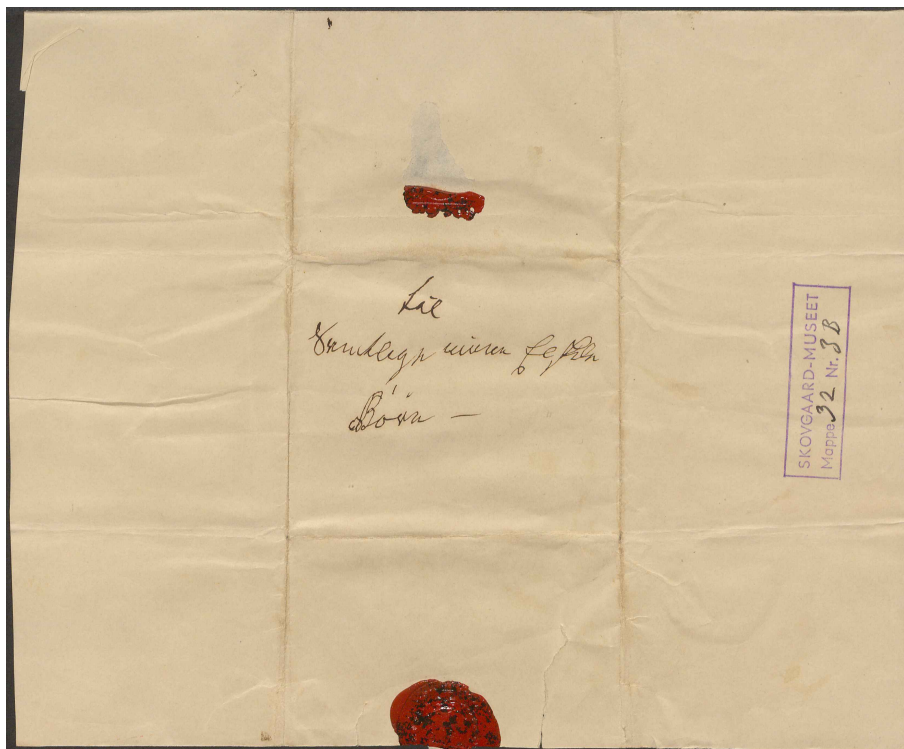 Til
Samtlige mine
Børn —
SKOVGAARD-MUSEET
Mappe 32 Nr. 3 B